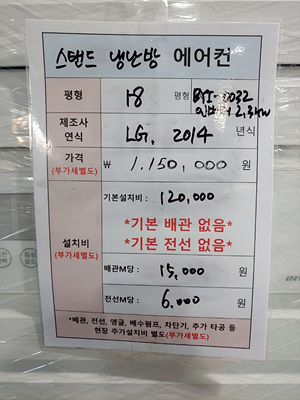 스탠드 냉난방 에어컨
평형 18 평형
제조사 LG. 2014 년식
연식
가격 ₩ 1,150,000 원
(부가세별도)
기본설치비 : 120,000
*기본 배관 없음*
설치비 *기본 전선 없음*
(부가세별도)
배관M당 : 15,000 원
전선M당 : 6,000 원
*배관, 전선, 앵글, 배수펌프, 차단기, 추가 타공 등
현장 추가설치비 별도(부가세별도)